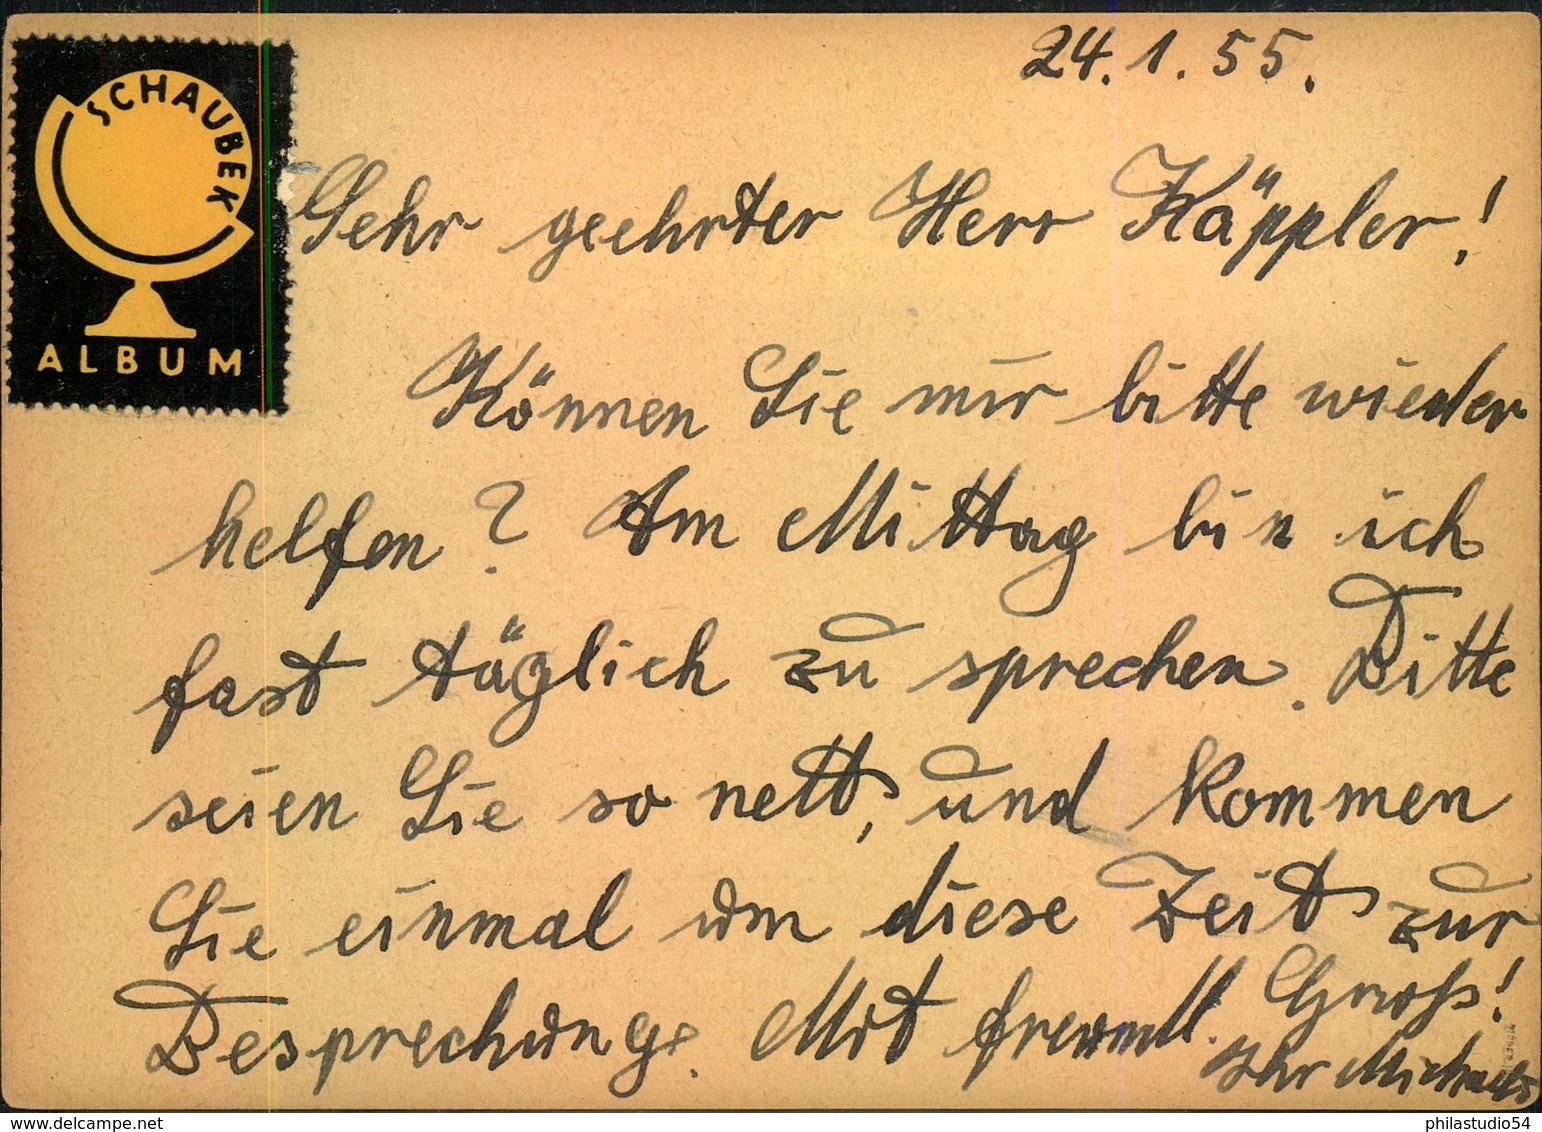 SCHAUBEK
ALBUM
24.1.55.
Sehr geehrter Herr Käppler!
Können Sie mir bitte wieder
helfen? Am Mittag bin ich
fast täglich zu sprechen. Bitte
seien Sie so nett, und kommen
Sie einmal um diese Zeit zur
Besprechung. Mit freundl. Gruß!
Ihr
philastudio54